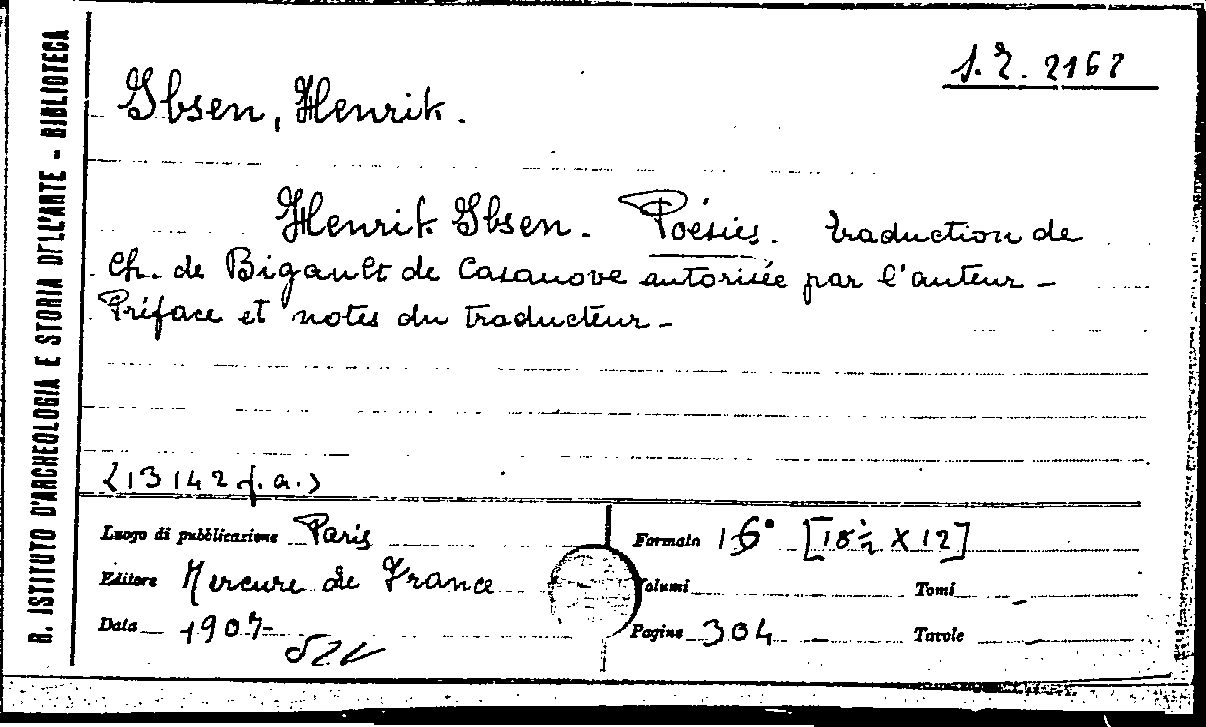 R. ISTITUTO D'ARCHEOLOGIA E STORIA DELL'ARTE - BIBLIOTECA
Ibsen, Henrik.
Henrik Ibsen. Poésies. traduction de
Ch. de Bigault de Casanove autorisée par l'auteur -
Préface et notes du traducteur -
(13142 f.a.)
Luogo di pubblicazione Paris
Editore Mercure de France
Data 1907
Formato 16° [18½ X 12]
Volumi Tomi
Pagine 304 Tavole